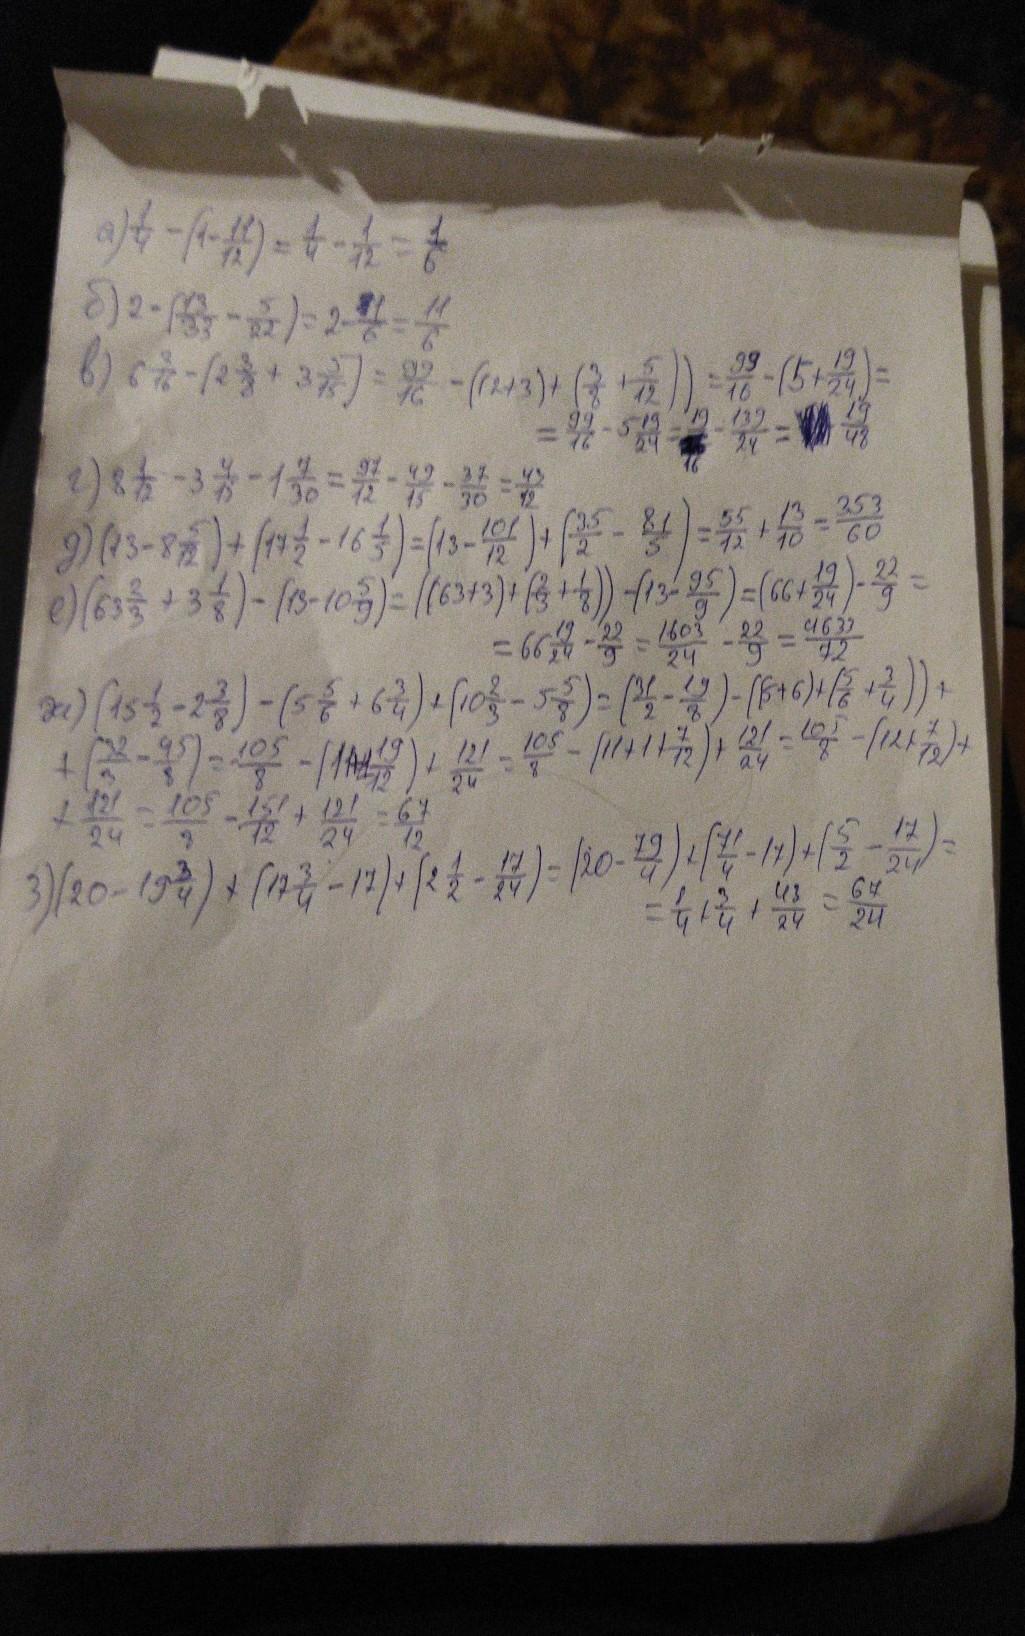 а) 1/4 - (1 - 11/12) = 1/4 - 1/12 = 1/6
б) 2 - (13/33 - 5/22) = 2 - 1/6 = 11/6
в) 6 3/16 - (2 3/8 + 3 5/15) = 99/16 - (12+3) + (3/8 + 5/12)) = 99/16 - (5 + 19/24) =
= 99/16 - 5 19/24 = 19/16 - 139/24 = 19/48
г) 8 1/12 - 3 4/15 - 1 7/30 = 97/12 - 49/15 - 37/30 = 43/12
д) (13 - 8 5/12) + (17 1/2 - 16 1/5) = (13 - 101/12) + (35/2 - 81/5) = 55/12 + 13/10 = 353/60
е) (63 2/3 + 3 1/8) - (13 - 10 5/9) = ((63+3) + (2/3 + 1/8)) - (13 - 95/9) = (66 + 19/24) - 22/9 =
= 66 19/24 - 22/9 = 1603/24 - 22/9 = 4633/72
ж) (15 1/2 - 2 3/8) - (5 5/6 + 6 3/4) + (10 2/3 - 5 5/8) = (31/2 - 19/8) - ((5+6) + (5/6 + 3/4)) +
+ (32/3 - 45/8) = 105/8 - (11 19/12) + 121/24 = 105/8 - (11 + 1 + 7/12) + 121/24 = 105/8 - (12 + 7/12) +
+ 121/24 = 105/8 - 151/12 + 121/24 = 67/12
з) (20 - 19 3/4) + (17 3/4 - 17) + (2 1/2 - 17/24) = (20 - 79/4) + (71/4 - 17) + (5/2 - 17/24) =
= 1/4 + 3/4 + 43/24 = 67/24